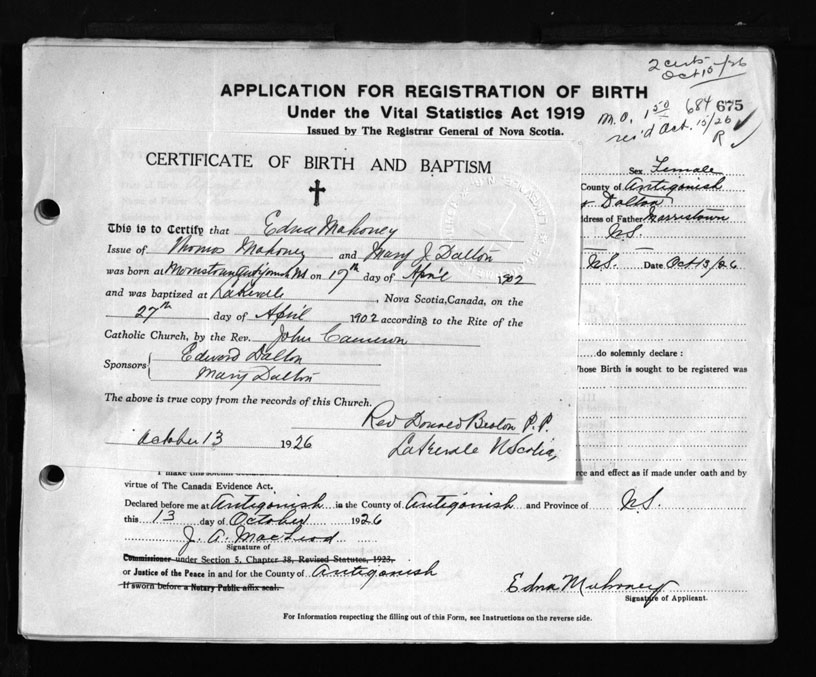 2 certs Oct 15/26
APPLICATION FOR REGISTRATION OF BIRTH
Under the Vital Statistics Act 1919
Issued by The Registrar General of Nova Scotia.
M.O. 1 50 684 675
rec'd Oct. 15/26
R
CERTIFICATE OF BIRTH AND BAPTISM
This is to Certify that Edna Mahoney
Issue of Thomas Mahoney and Mary J Dalton
was born at Morristown Antigonish NS on 17th day of April 1902
and was baptized at Lakevale, Nova Scotia, Canada, on the
27th day of April 1902 according to the Rite of the
Catholic Church, by the Rev. John Cameron
Sponsors Edward Dalton
Mary Dalton
The above is true copy from the records of this Church.
Rev Donald Beaton P.P.
October 13 1926 Lakevale N Scotia,
Sex Female
County of Antigonish
Dalton
dress of Father Morristown
N.S.
N.S. Date Oct 13/26
do solemnly declare :
hose Birth is sought to be registered was
rce and effect as if made under oath and by
virtue of The Canada Evidence Act.
Declared before me at Antigonish in the County of Antigonish and Province of N.S.
this 13 day of October 1926
J. A. MacLeod
Signature of
Commissioner under Section 5, Chapter 38, Revised Statutes, 1923,
or Justice of the Peace in and for the County of Antigonish
If sworn before a Notary Public affix seal.
Edna Mahoney
Signature of Applicant.
For Information respecting the filling out of this Form, see Instructions on the reverse side.